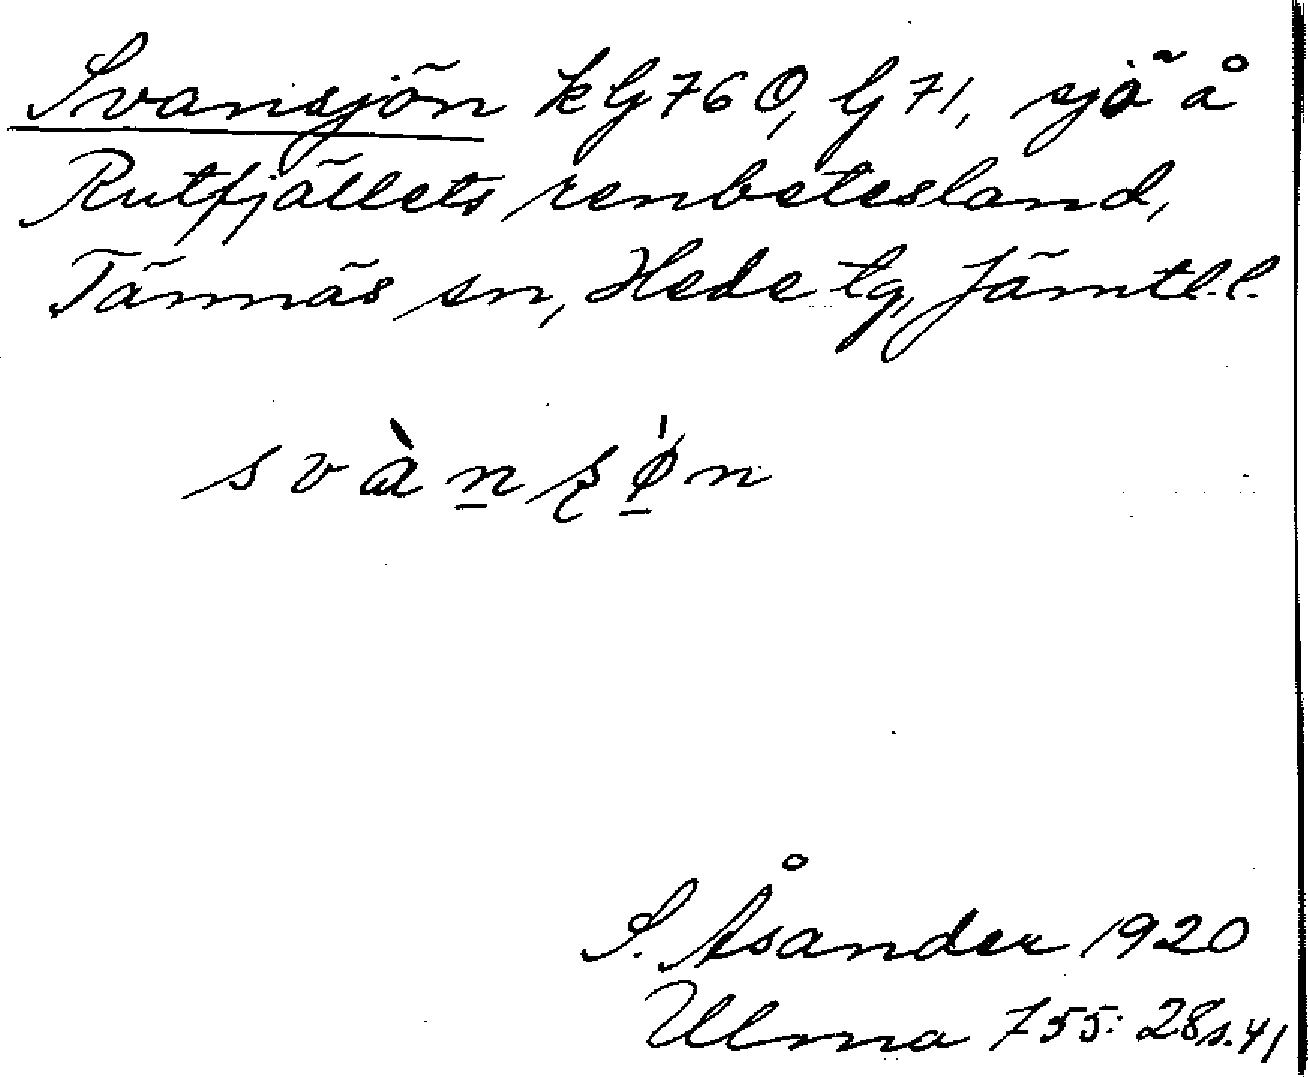 Svansjön kG 760, G 71, sjö å
Rutfjällets renbetesland,
Tännäs sn, Hede tg, Jämtl.l.
svàn̲ʂǿ̲n
S. Åsander 1920
Ulma 755: 28 s. 41